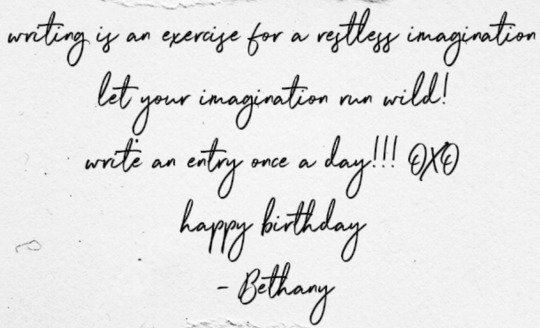 writing is an exercise for a restless imagination
let your imagination run wild!
write an entry once a day!!! OXO
happy birthday
- Bethany